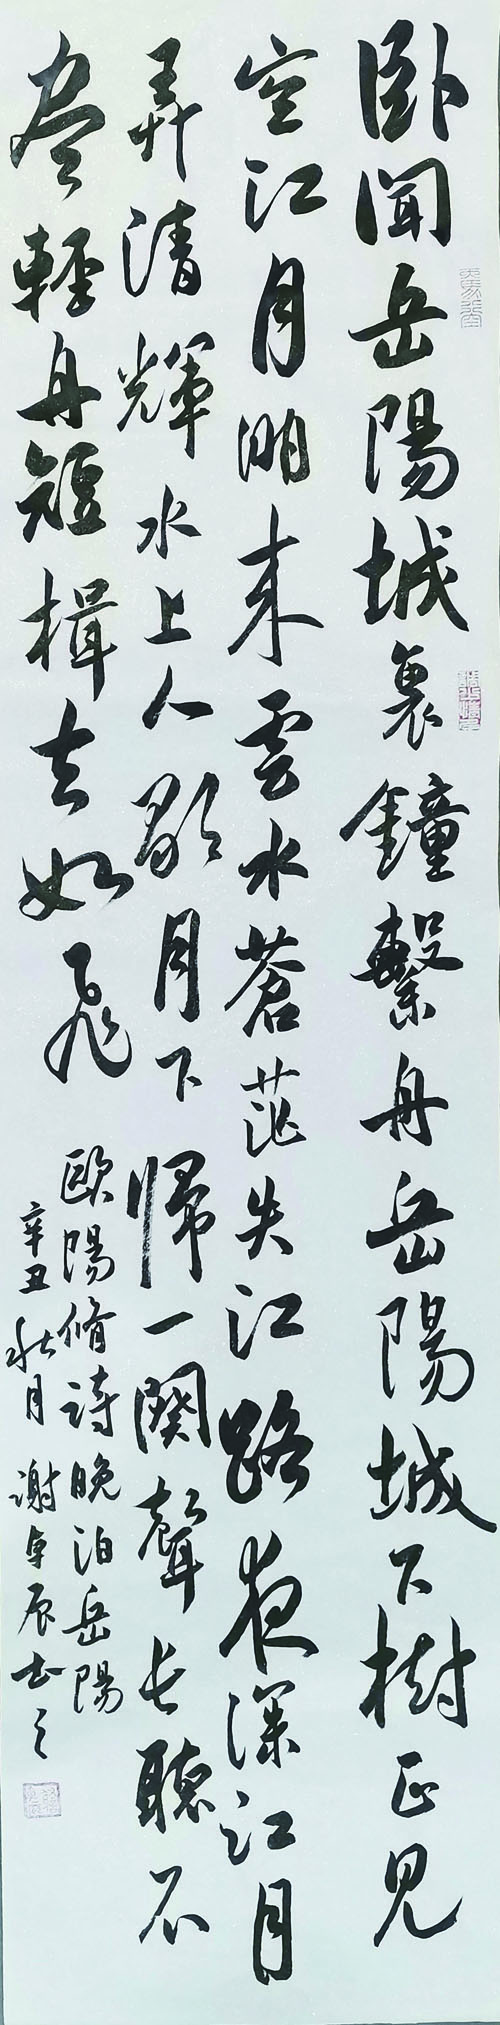 卧聞岳陽城裏鐘繫舟岳陽城下樹正見
空江月明来雲水蒼茫失江路夜深江月
弄清輝水上人歌月下歸一闋聲長聽不
盡輕舟短楫去如飛
歐陽脩詩晚泊岳陽
辛丑秋月謝卓辰书之